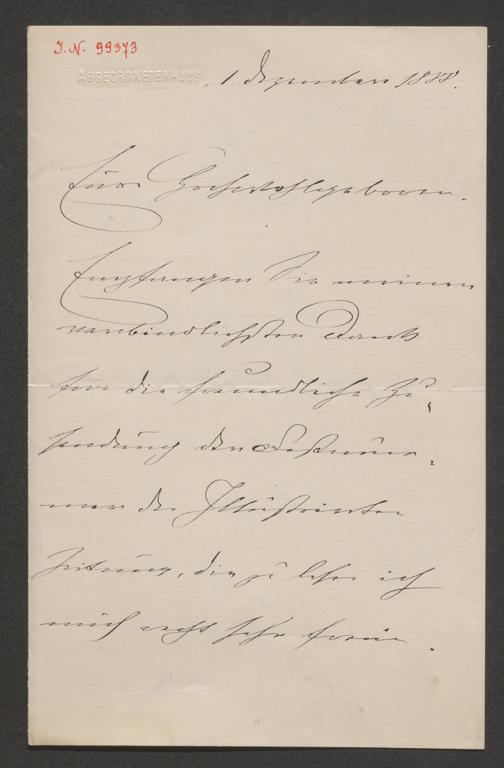 I.N. 99373
ABGEORDNETENHAUS, 1. Dezember 1888.
Euer Hochwohlgeboren.
Empfangen Sie meinen
verbindlichsten Dank
für die freundliche Zu-
sendung der Festnum-
mer der Illustrirten
Zeitung, die zu lesen ich
mich recht sehr freue.